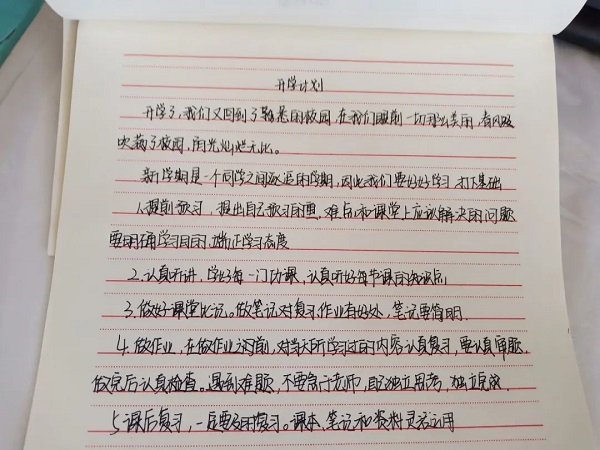 开学计划
开学了,我们又回到了熟悉的校园,在我们眼前一切那么美丽,春风吹
吹满了校园,阳光灿烂无比。
新学期是一个同学之间追逐的学期,因此我们要好好学习,打下基础
1、提前预习,提出自己预习的重、难点和课堂上应该解决的问题
要明确学习目的,端正学习态度
2、认真听讲,学好每一门功课,认真听好每节课的知识点
3、做好课堂笔记。做笔记对复习、作业有好处,笔记要简明.
4、做作业,在做作业之前,对当天所学习过的内容认真复习,要认真审题,
做完后认真检查。遇到难题,不要急于老师,自己独立思考,独立完成.
5、课后复习,一定要及时复习。课本、笔记和资料灵活运用